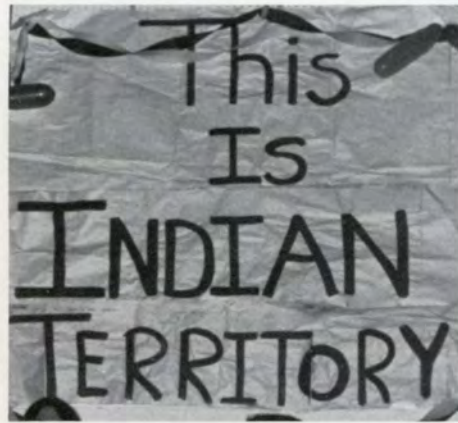 This
Is
INDIAN
TERRITORY